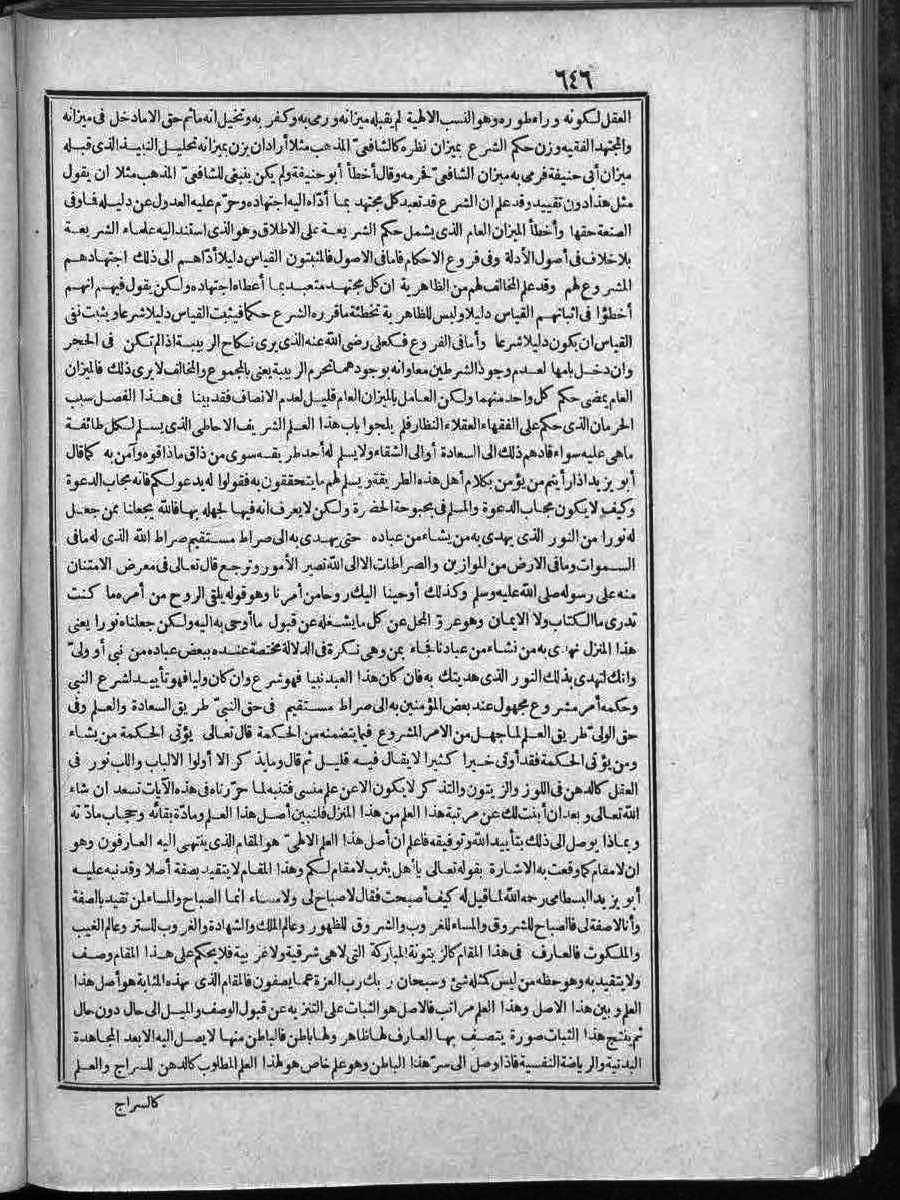 ٦٤٦
العقل لكونه وراء طوره وهو النسب الالهية لم يقبله ميزانه ورمى به وكفر به وتخيل انه ماثم حق الا مادخل فى ميزانه
والمجتهد الفقيه وزن حكم الشرع بميزان نظره كالشافعىّ المذهب مثلا أراد ان يزن بميزانه تحليل النبيذ الذى قبله
ميزان أبى حنيفة فرمى به ميزان الشافعىّ فحرمه وقال أخطأ أبو حنيفة ولم يكن ينبغى للشافعىّ المذهب مثلا ان يقول
مثل هذا دون تقييد وقد علم ان الشرع قد تعبد كل مجتهد بما أدّاه اليه اجتهاده وحرّم عليه العدول عن دليله فما وفى
الصنعة حقها وأخطأ الميزان العام الذى يشمل حكم الشريعة على الاطلاق وهو الذى استند اليه علماء الشريعة
بلا خلاف فى أصول الأدلة وفى فروع الاحكام فاما فى الاصول فالمثبتون القياس دليلا أدّاهم الى ذلك اجتهادهم
المشروع لهم وقد علم المخالف لهم من الظاهرية ان كل مجتهد متعبد بما أعطاه اجتهاده ولكن يقول فيهم انهم
أخطؤا فى اثباتهم القياس دليلا وليس للظاهرية تخطئة ماقرره الشرع حكما فيثبت القياس دليلا شرعا ويثبت نفى
القياس ان يكون دليلا شرعا وأما فى الفروع فكعلى رضى الله عنه الذى يرى نكاح الربيبة اذا لم تكن فى الحجر
وان دخل بامها لعدم وجود الشرطين معا وانه بوجودهما تحرم الربيبة يعنى بالمجموع والمخالف لا يرى ذلك فالميزان
العام يمضى حكم كل واحد منهما ولكن العامل بالميزان العام قليل لعدم الانصاف فقد بينا فى هذا الفصل سبب
الحرمان الذى حكم على الفقهاء العقلاء النظار فلم يلجوا باب هذا العلم الشريف الاحاطى الذى يسلم لكل طائفة
ماهى عليه سواء قادهم ذلك الى السعادة أو الى الشقاء ولا يسلم له أحد طريقه سوى من ذاق ماذاقوه وآمن به كما قال
أبو يزيد اذا رأيتم من يؤمن بكلام أهل هذه الطريقة ويسلم لهم مايتحققون به فقولوا له يدعو لكم فانه مجاب الدعوة
وكيف لا يكون مجاب الدعوة والمسلم فى بحبوحة الحضرة ولكن لا يعرف انه فيها لجهله بها فالله يجعلنا ممن جعل
له نورا من النور الذى يهدى به من يشاء من عباده حتى يهدى به الى صراط مستقيم صراط الله الذى له مافى
السموات ومافى الارض من الموازين والصراطات الا الى الله تصير الأمور وترجع قال تعالى فى معرض الامتنان
منه على رسوله صلى الله عليه وسلم وكذلك أوحينا اليك روحا من أمرنا وهو قوله يلقى الروح من أمره ما كنت
تدرى ما الكتاب ولا الايمان وهو عروّ المحل عن كل مايشغله عن قبول ماأوحى به اليه ولكن جعلناه نورا يعنى
هذا المنزل نهدى به من نشاء من عبادنا فجاء بمن وهى نكرة فى الدلالة مختصة عنده ببعض عباده من نبى أو ولىّ
وانك لتهدى بذلك النور الذى هديتك به فان كان هذا العبد نبيا فهو شرع وان كان وليا فهو تأييد لشرع النبى
وحكمه أمر مشروع مجهول عند بعض المؤمنين به الى صراط مستقيم فى حق النبىّ طريق السعادة والعلم وفى
حق الولىّ طريق العلم لما جهل من الامر المشروع فيما يتضمنه من الحكمة قال تعالى يؤتى الحكمة من يشاء
ومن يؤتى الحكمة فقد أوتى خيرا كثيرا لا يقال فيه قليل ثم قال وما يذكر الا أولوا الالباب واللب نور فى
العقل كالدهن فى اللوز والزيتون والتذكر لا يكون الا عن علم منسى فتنبه لما حرّرناه فى هذه الآيات تسعد ان شاء
الله تعالى وبعد ان أبنت لك عن مرتبة هذا العلم من هذا المنزل فلنبين أصل هذا العلم ومادّة بقائه وحجاب مادّته
وبماذا يوصل الى ذلك بتأييد الله وتوفيقه فاعلم ان أصل هذا العلم الالهىّ هو المقام الذى ينتهى اليه العارفون وهو
ان لا مقام كما وقعت به الاشارة بقوله تعالى ياأهل يثرب لا مقام لكم وهذا المقام لا يتقيد بصفة أصلا وقد نبه عليه
أبو يزيد البسطامى رحمه الله لما قيل له كيف أصبحت فقال لا صباح لى ولا مساء انما الصباح والمساء لمن تقيد بالصفة
وأنا لا صفة لى فالصباح للشروق والمساء للغروب والشروق للظهور وعالم الملك والشهادة والغروب للستر وعالم الغيب
والملكوت فالعارف فى هذا المقام كالزيتونة المباركة التى لاهى شرقية ولا غربية فلا يحكم على هذا المقام وصف
ولا يتقيد به وهو حظه من ليس كمثله شئ وسبحان ربك رب العزة عما يصفون فالمقام الذى بهذه المثابة هو أصل هذا
العلم وبين هذا الاصل وهذا العلم مراتب فالاصل هو الثبات على التنزيه عن قبول الوصف والميل الى حال دون حال
ثم ينتج هذا الثبات صورة يتصف بها العارف لها ظاهر ولها باطن فالباطن منها لا يصل اليه الا بعد المجاهدة
البدنية والرياضة النفسية فاذا وصل الى سرّ هذا الباطن وهو علم خاص هو لهذا العلم المطلوب كالدهن للسراج والعلم
كالسراج